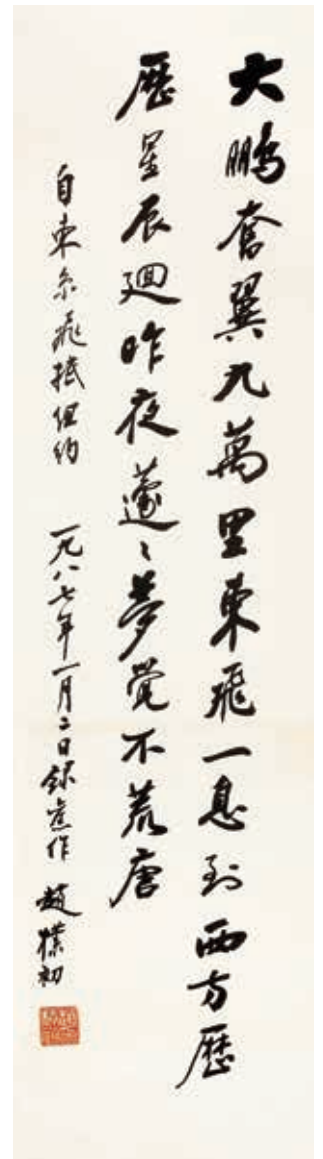 大鵬奮翼九萬里東飛一息到西方歷
歷星辰迴昨夜蘧〻夢覺不荒唐
自東京飛抵紐約 一九八七年一月二日錄舊作 趙樸初